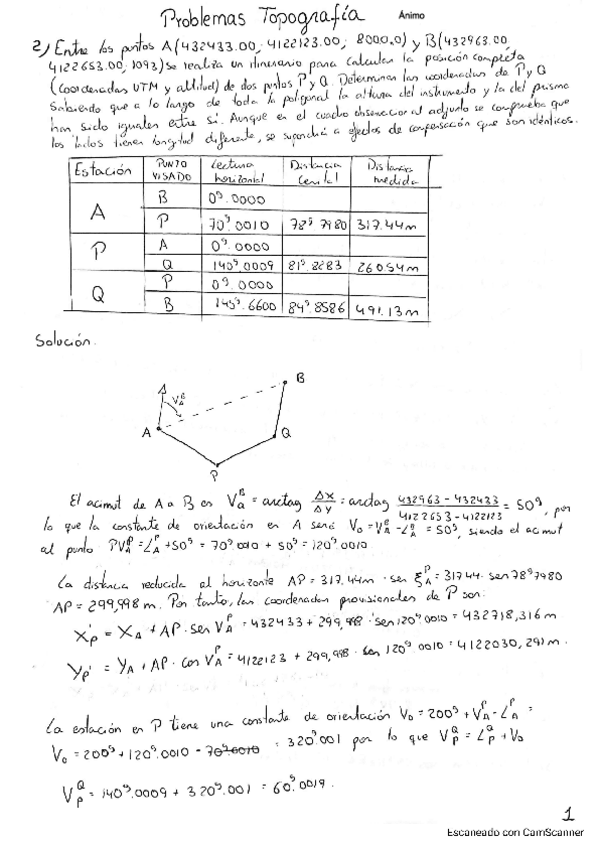 Problemas Topografía Ánimo
2) Entre los puntos A(432433.00, 4122123.00; 8000.0) y B(432963.00
4122653.00, 1093) se realiza un itinerario para calcular la posición completa
(coordenadas UTM y altitud) de dos puntos P y Q. Determinar las coordenadas de P y Q
Sabiendo que a lo largo de toda la poligonal la altura del instrumento y la del prisma
han sido iguales entre sí. Aunque en el cuadro observacional adjunto se comprueba que
los lados tienen longitud diferente, se supondrá a efectos de compensación que son idénticos.
Estación PUNTO VISADO Lectura horizontal Distancia Cenital Distancia medida
A B 0ᵍ.0000
P 70ᵍ.0010 78ᵍ.7980 317.44m
P A 0ᵍ.0000
Q 140ᵍ.0009 81ᵍ.8283 260.54m
Q P 0ᵍ.0000
B 145ᵍ.6600 84ᵍ.8586 491.13m
Solución.
B
V_A^B
A
Q
P
El acimut de A a B es V_A^B = arctag Δx/Δy = arctag (432963 - 432433)/(4122653 - 4122123) = 50ᵍ, por
lo que la constante de orientación en A será V₀ = V_A^B - L_A^B = 50ᵍ, siendo el acimut
al punto P V_A^P = L_A^P + 50ᵍ = 70ᵍ.0010 + 50ᵍ = 120ᵍ.0010
La distancia reducida al horizonte AP = 317.44m · sen ξ_A^P = 317.44 · sen 78ᵍ7980
AP = 299,998 m. Por tanto, las coordenadas provisionales de P son:
X_P' = X_A + AP · sen V_A^P = 432433 + 299,998 · sen 120ᵍ.0010 = 432718,316 m
Y_P' = Y_A + AP · cos V_A^P = 4122123 + 299,998 · sen 120ᵍ.0010 = 4122030,291 m.
La estación en P tiene una constante de orientación V₀ = 200ᵍ + V_A^P - L_A^P =
V₀ = 200ᵍ + 120ᵍ.0010 - 70ᵍ0010 = 320ᵍ.001 por lo que V_P^Q = L_P^Q + V₀
V_P^Q = 140ᵍ.0009 + 320ᵍ.001 = 60ᵍ.0019.
1
Escaneado con CamScanner